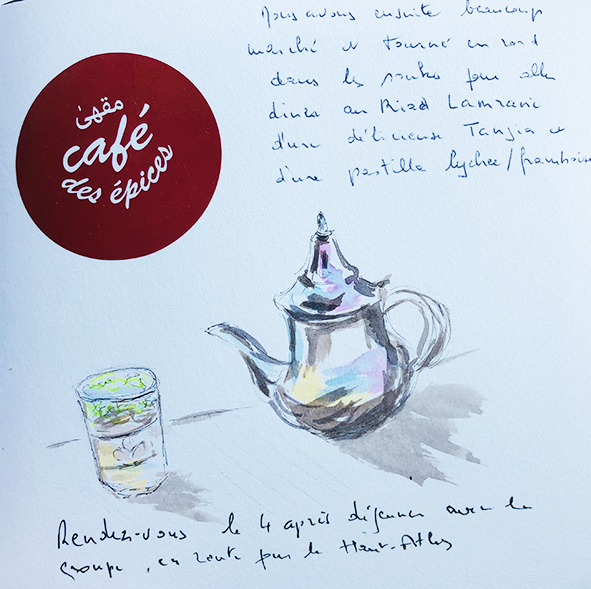 Nous avons ensuite beaucoup
marché et tourné en rond
dans les souks pour aller
diner au Riad Lamrani
d'une délicieuse Tanjia et
d'une pastilla lychee/framboise
مقهىٰ
café
des épices
Rendez-vous le 4 après déjeuner avec le
groupe, en route pour le Haut-Atlas